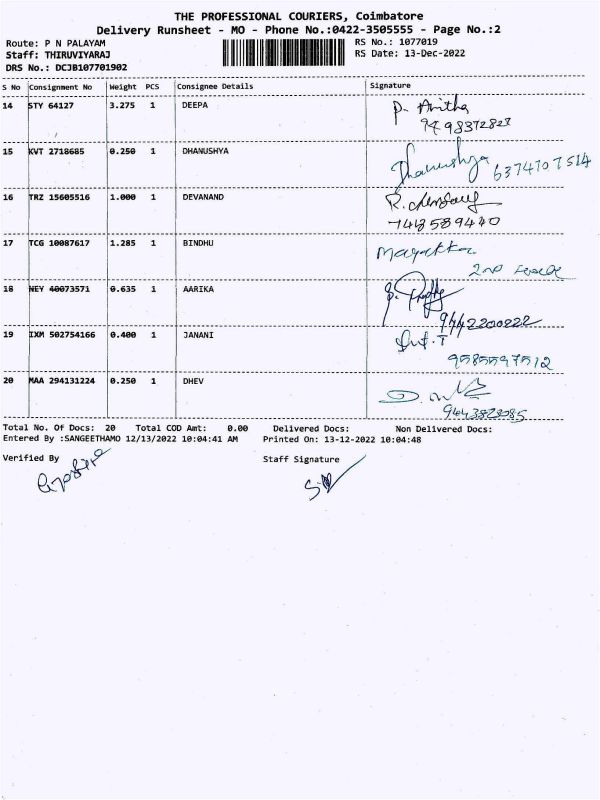 THE PROFESSIONAL COURIERS, Coimbatore
Delivery Runsheet - MO - Phone No.:0422-3505555 - Page No.:2
Route: P N PALAYAM
Staff: THIRUVIYARAJ
DRS No.: DCJB107701902
RS No.: 1077019
RS Date: 13-Dec-2022
S No Consignment No Weight PCS Consignee Details Signature
14 STY 64127 3.275 1 DEEPA P. Anitha
15 KVT 2718685 0.250 1 DHANUSHYA Dhanushya 6374707514
16 TRZ 15605516 1.000 1 DEVANAND
7448589440
17 TCG 10087617 1.285 1 BINDHU
18 NEY 40073571 0.635 1 AARIKA
9442200222
19 IXM 502754166 0.400 1 JANANI
9585597512
20 MAA 294131224 0.250 1 DHEV
Total No. Of Docs: 20 Total COD Amt: 0.00 Delivered Docs: Non Delivered Docs:
Entered By :SANGEETHAMO 12/13/2022 10:04:41 AM Printed On: 13-12-2022 10:04:48
Verified By Staff Signature